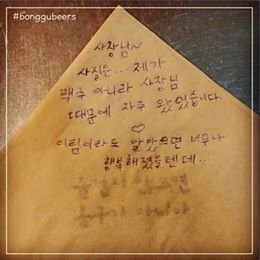 #bonggubeers
사장님~
사실은... 제가
맥주 아니라 사장님
때문에 자주 왔었습니다.
♡
이름이라도 알았으면 너무나
행복해졌을텐데...